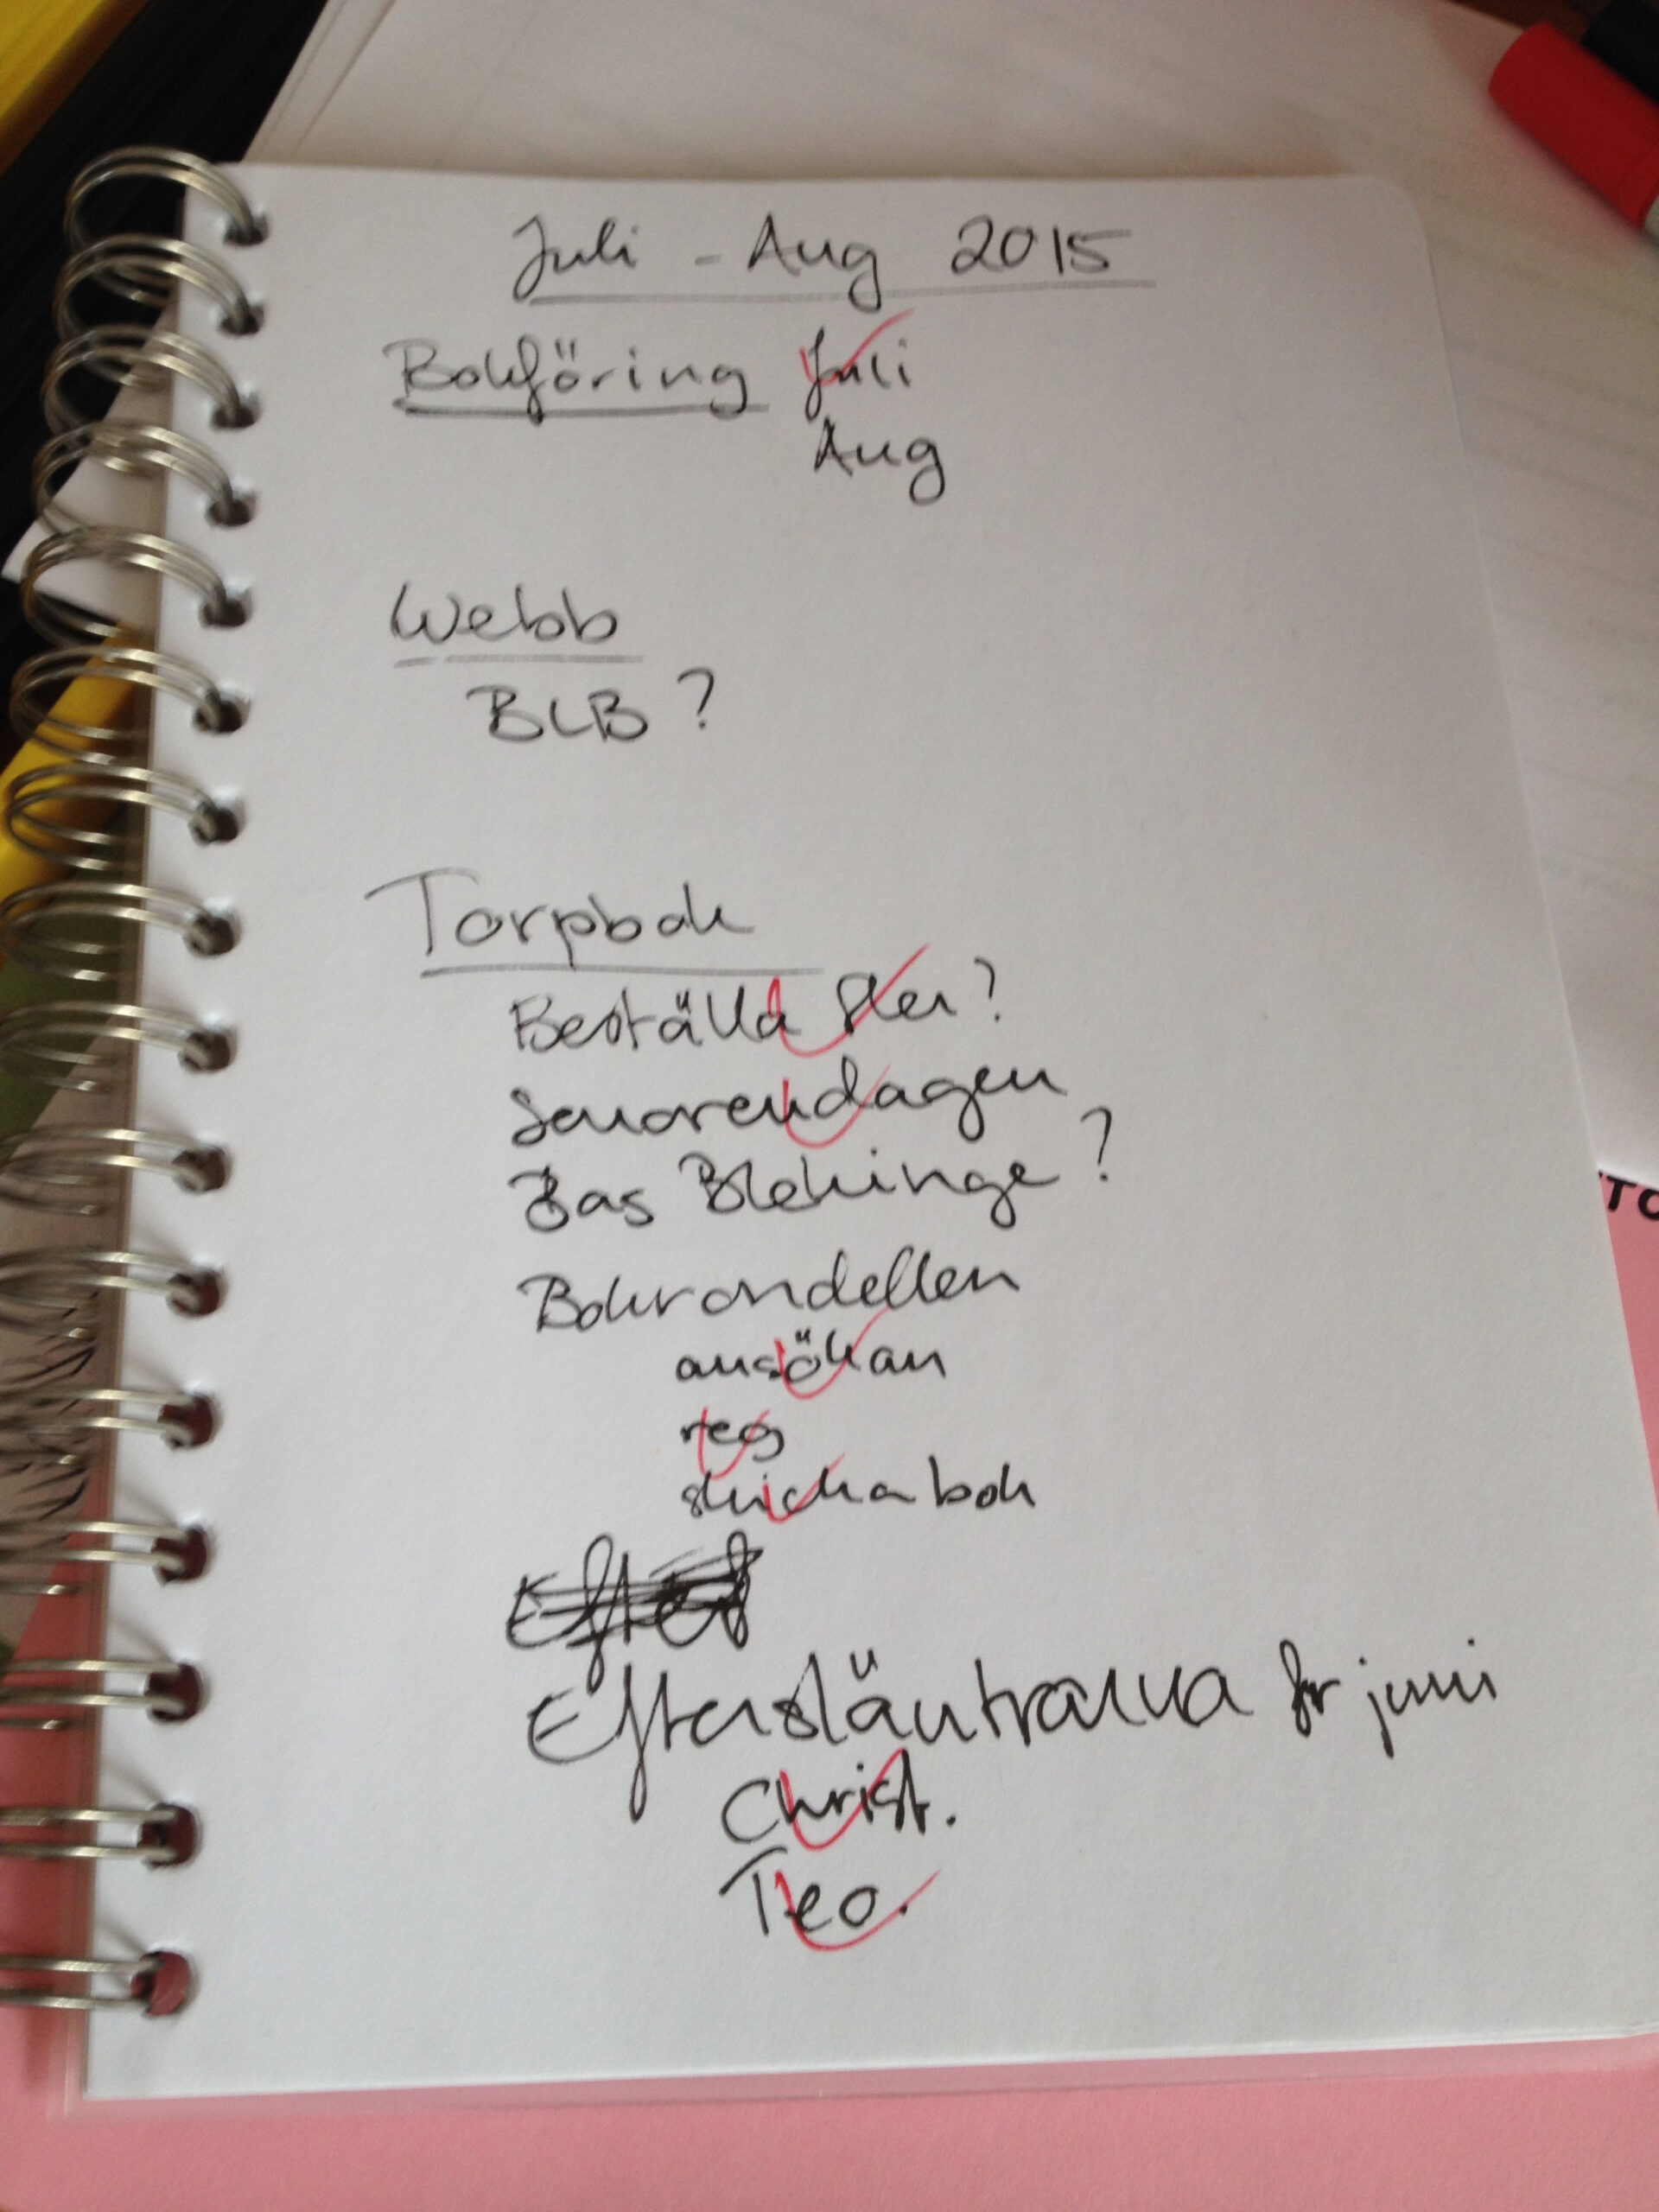 Juli - Aug 2015
Bokföring Juli
Aug
Webb
BLB?
Torpbok
Beställa fler?
Senorendagen
Bas Blekinge?
Bokrondellen
ansökan
reg
skicka bok
Eftersläntrarna för juni
Christ.
Teo.
TO